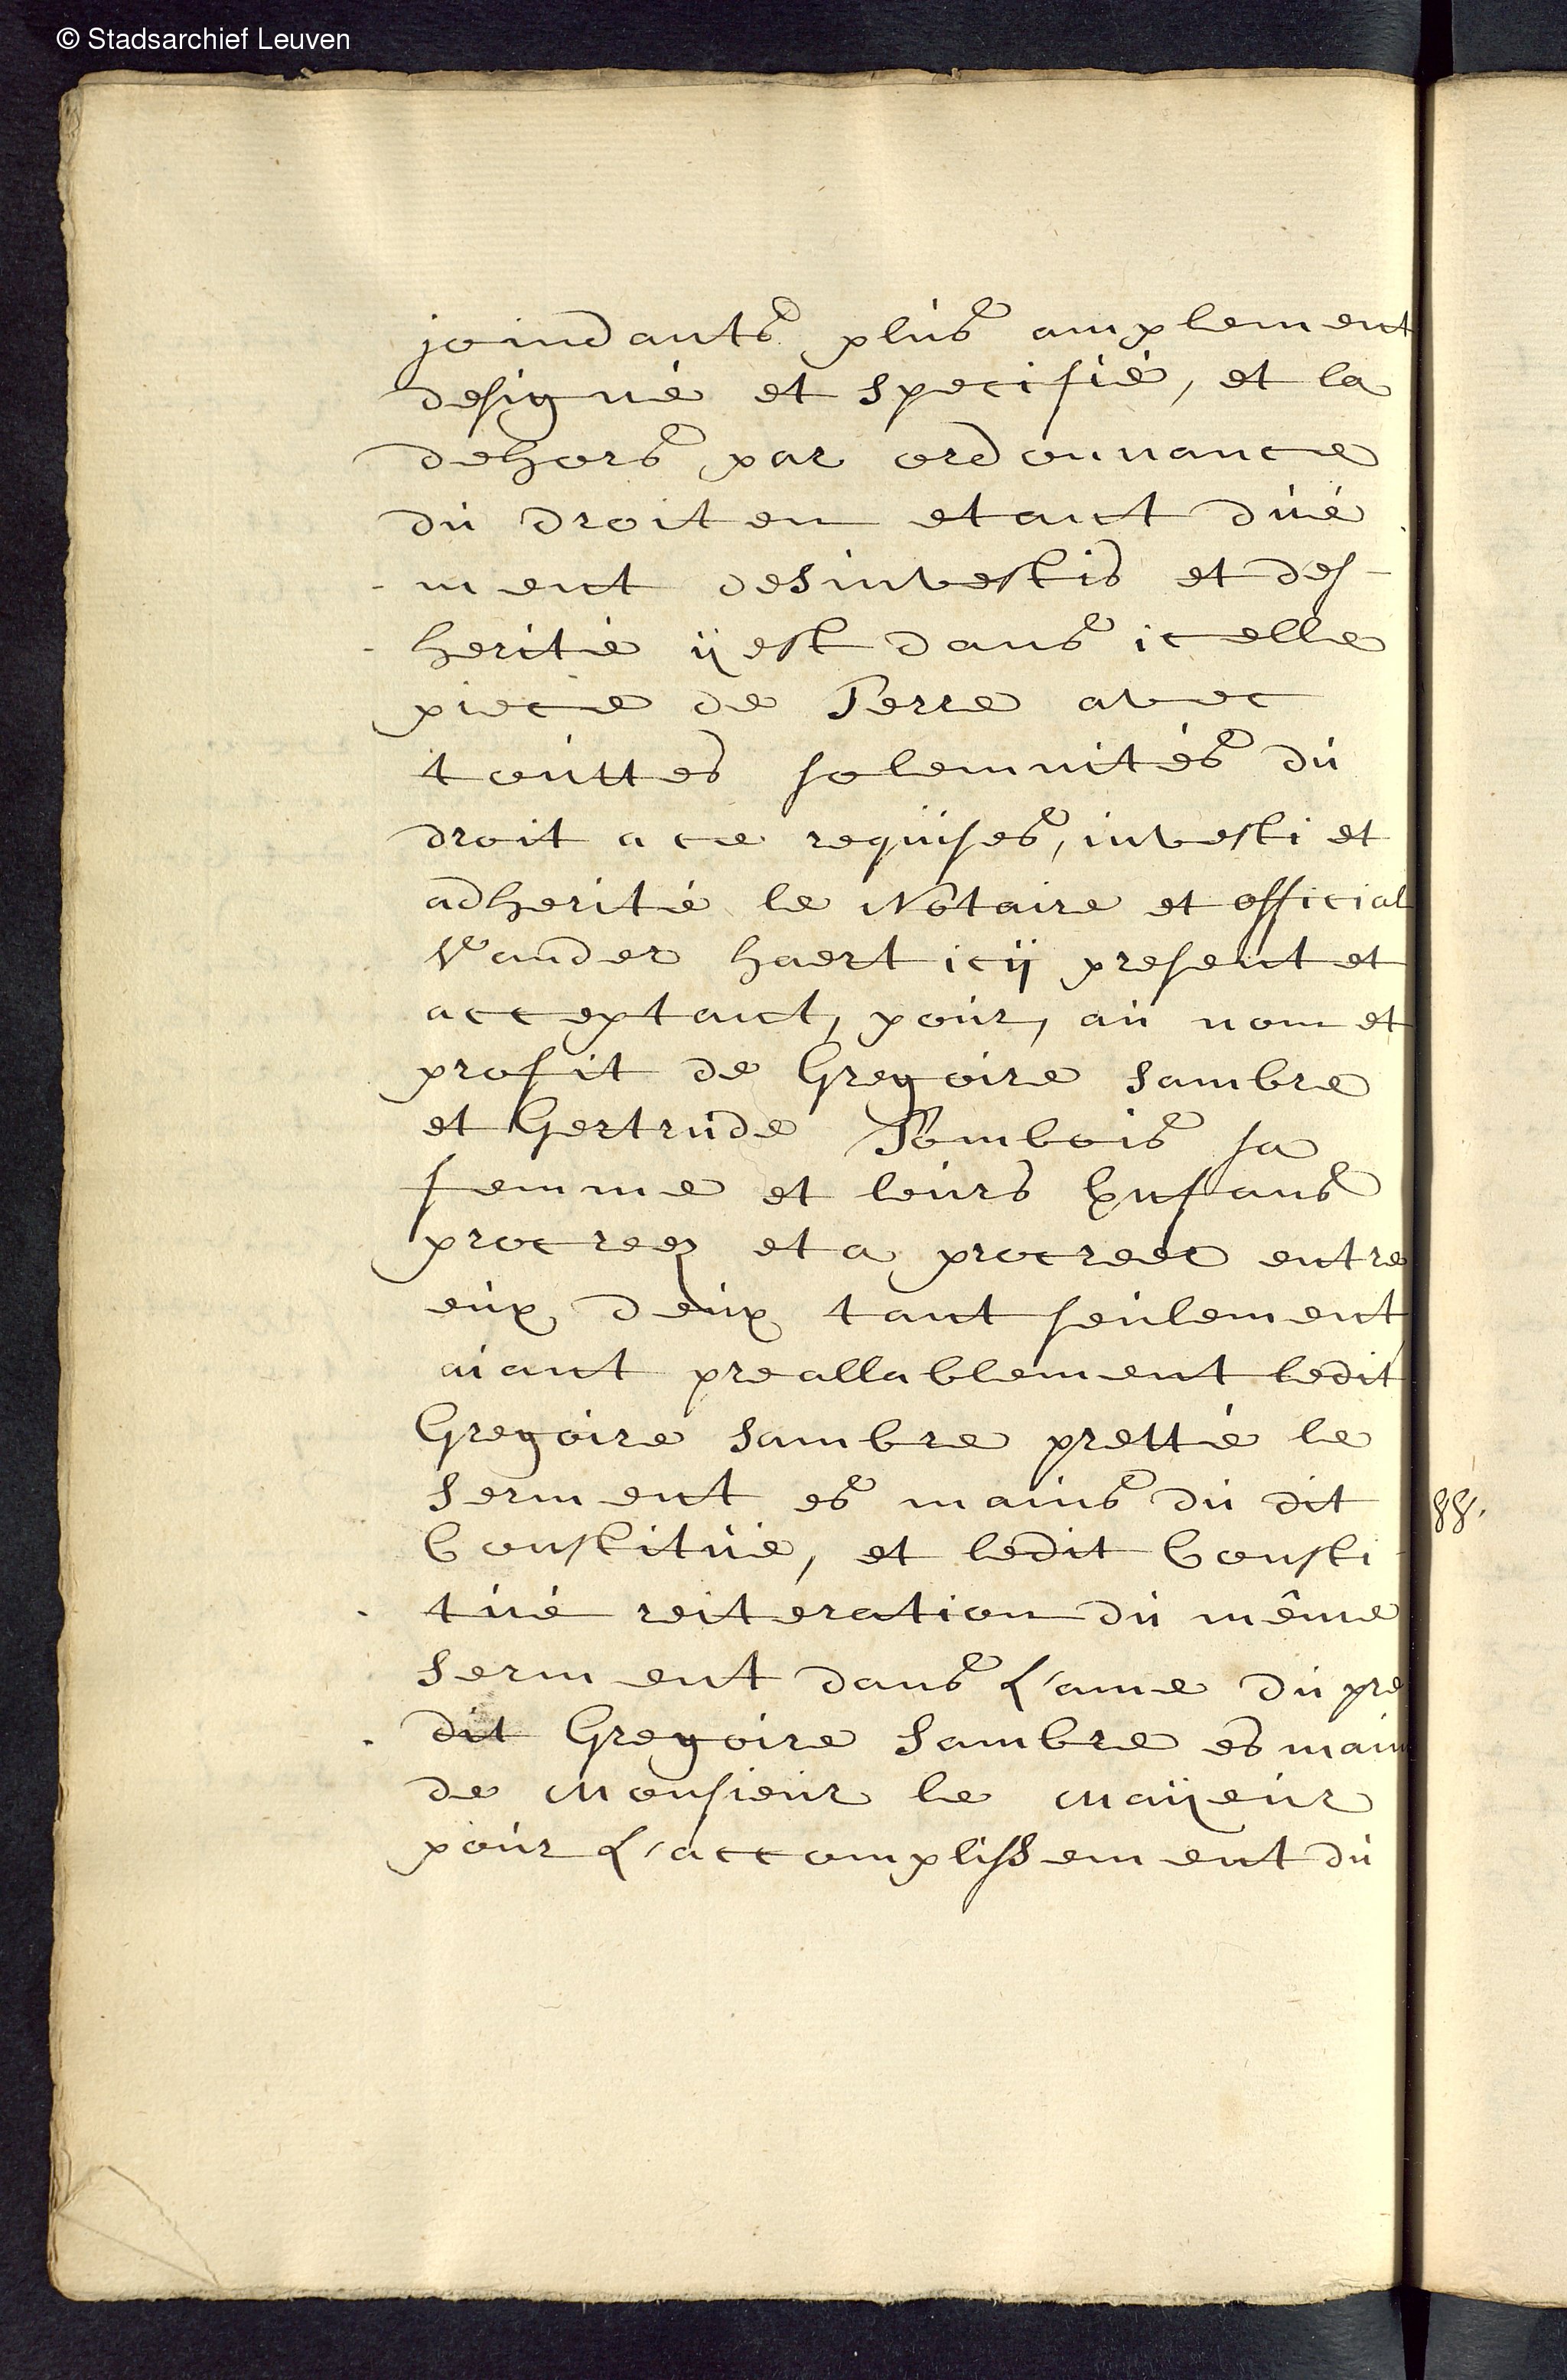 © Stadsarchief Leuven
joindants plus amplement
designé et specifié, et la
dehors par ordonnance
du droit en etant düé
-ment desinvestis et des-
-herité ÿ est dans icelle
piece de Terre avec
touttes solemnités du
droit a ce requises, investi et
adherité le Notaire et official
Vander haert icÿ present et
acceptant, pour, au nom et
profit de Gregoire Sambre
et Gertrude Tombois sa
femme et leurs Enfans
procreez et a procreer entre
eux deux tant seulement
aiant preallablement ledit
Gregoire Sambre pretté le
Serment es mains du dit
Constitüé, et ledit Consti
tüé reiteration du même
Serment dans L'ame du pre
dit Gregoire Sambre es mains
de Monsieur le Maÿeur
pour L'accomplissement du